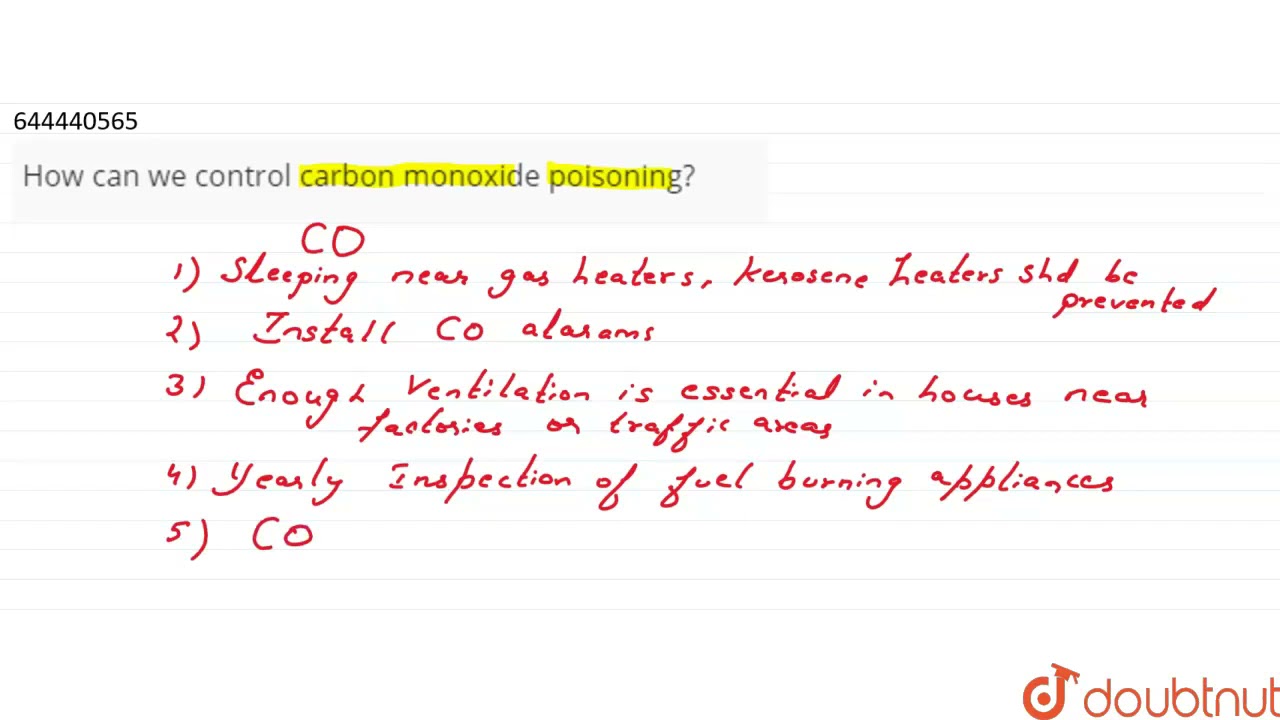 644440565
How can we control carbon monoxide poisoning?
CO
1) Sleeping near gas heaters, kerosene heaters shd be
prevented
2) Install CO alarams
3) Enough Ventilation is essential in houses near
factories or traffic areas
4) Yearly Inspection of fuel burning appliances
5) CO
doubtnut